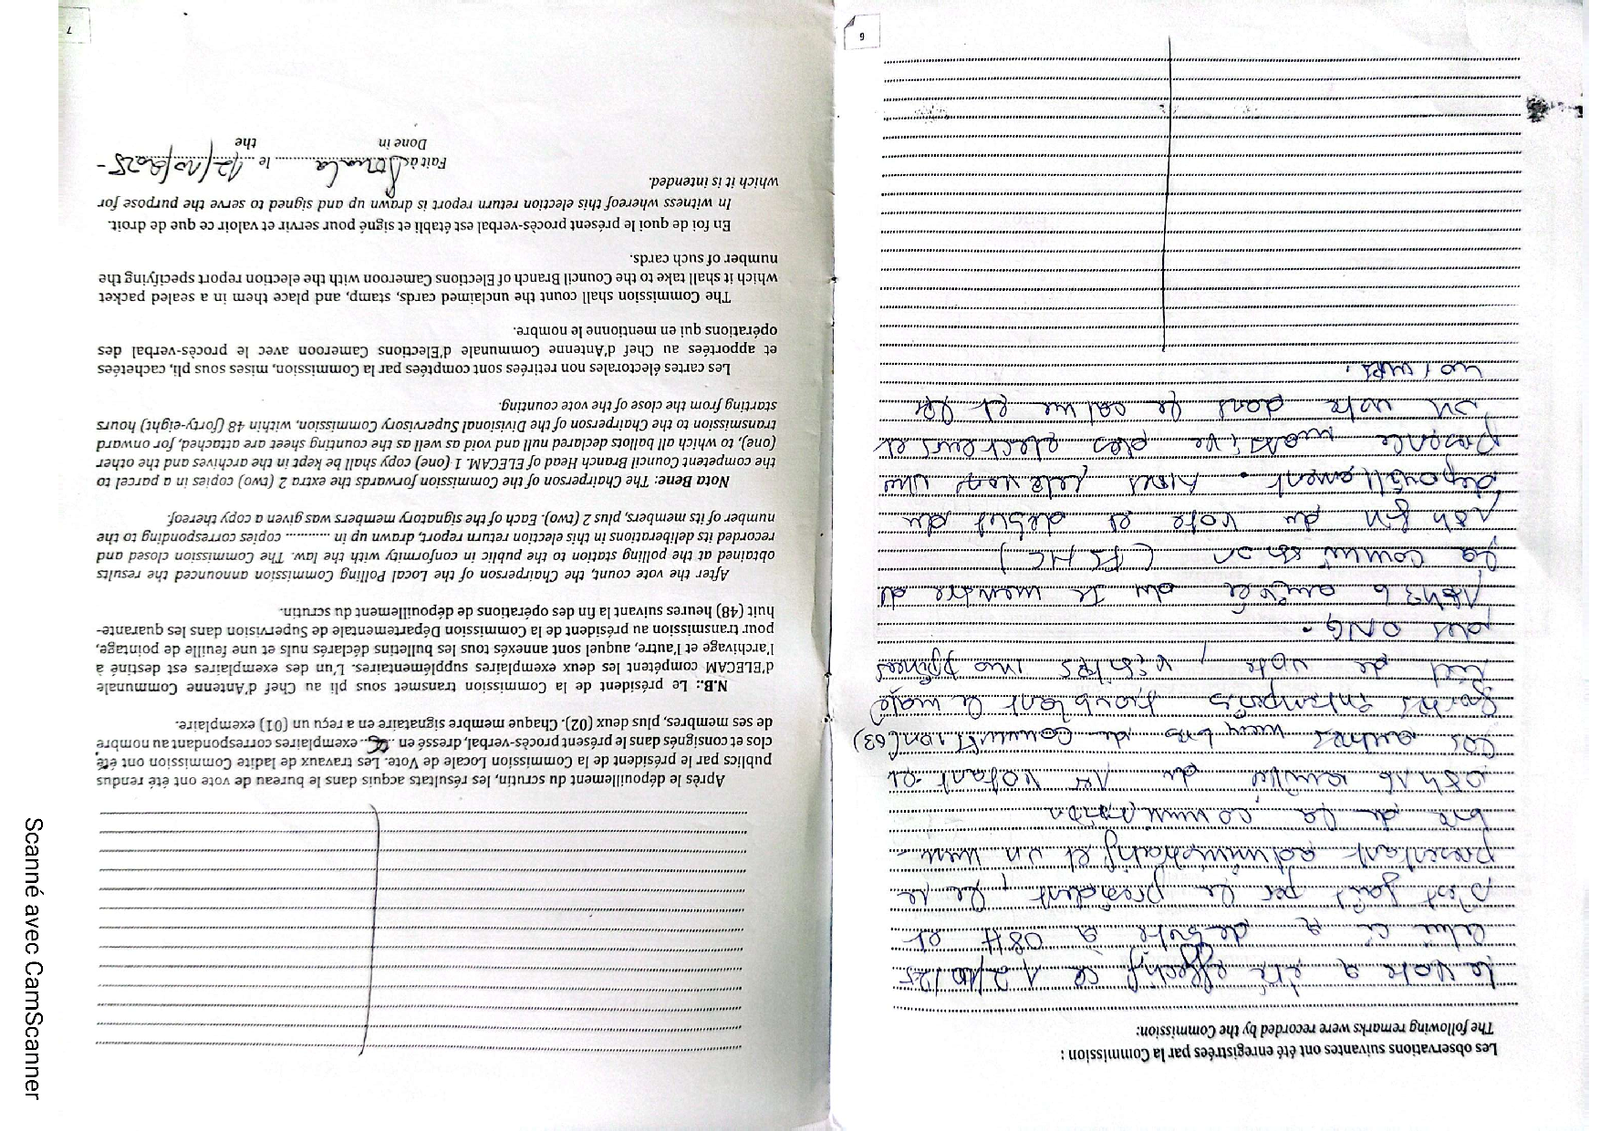 Les observations suivantes ont été enregistrées par la Commission :
The following remarks were recorded by the Commission:
Le vote a été effectif ce 12/10/25
celui ci a debuté à 08H et
s'est fait par le president, le re
presentant administratif et un mem-
bre de la commission
08h16 arrivée du 1er votant et
les autres membres de commission (03)
le male
lieu de vote, visites inopinées
des ONG.
15h36 arrivée du 5e membre de
la commission (FSNC)
18h fin du vote et debut du
depouillement. Nous une
presence massive des electeurs et
un vote dans le calme et les
normes.
6
Après le dépouillement du scrutin, les résultats acquis dans le bureau de vote ont été rendus
publics par le président de la Commission Locale de Vote. Les travaux de ladite Commission ont été
clos et consignés dans le présent procès-verbal, dressé en ........ exemplaires correspondant au nombre
de ses membres, plus deux (02). Chaque membre signataire en a reçu un (01) exemplaire.
N.B.: Le président de la Commission transmet sous pli au Chef d'Antenne Communale
d'ELECAM compétent les deux exemplaires supplémentaires. L'un des exemplaires est destiné à
l'archivage et l'autre, auquel sont annexés tous les bulletins déclarés nuls et une feuille de pointage,
pour transmission au président de la Commission Départementale de Supervision dans les quarante-
huit (48) heures suivant la fin des opérations de dépouillement du scrutin.
After the vote count, the Chairperson of the Local Polling Commission announced the results
obtained at the polling station to the public in conformity with the law. The Commission closed and
recorded its deliberations in this election return report, drawn up in ........... copies corresponding to the
number of its members, plus 2 (two). Each of the signatory members was given a copy thereof.
Nota Bene: The Chairperson of the Commission forwards the extra 2 (two) copies in a parcel to
the competent Council Branch Head of ELECAM. 1 (one) copy shall be kept in the archives and the other
(one), to which all ballots declared null and void as well as the counting sheet are attached, for onward
transmission to the Chairperson of the Divisional Supervisory Commission, within 48 (forty-eight) hours
starting from the close of the vote counting.
Les cartes électorales non retirées sont comptées par la Commission, mises sous pli, cachetées
et apportées au Chef d'Antenne Communale d'Elections Cameroon avec le procès-verbal des
opérations qui en mentionne le nombre.
The Commission shall count the unclaimed cards, stamp, and place them in a sealed packet
which it shall take to the Council Branch of Elections Cameroon with the election report specifying the
number of such cards.
En foi de quoi le présent procès-verbal est établi et signé pour servir et valoir ce que de droit.
In witness whereof this election return report is drawn up and signed to serve the purpose for
which it is intended.
Fait à Douala le 12/10/2025-
Done in the
7
Scanné avec CamScanner